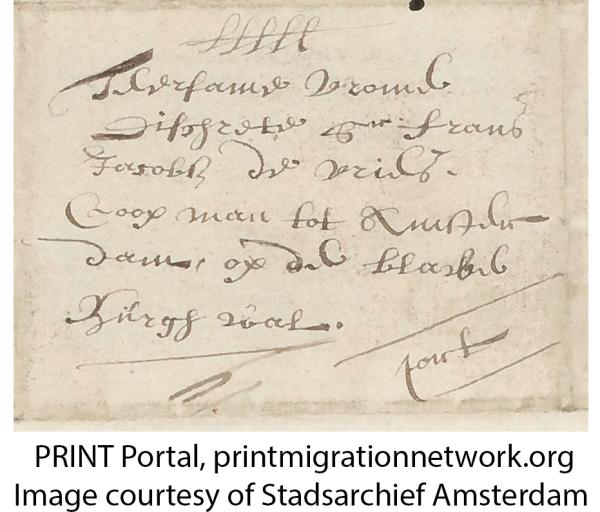 Eersame vrome
Dischrete Sr frans
Jacobs de vries.
Coopman tot Amster
dam, op de blaeuwe
Burghwal.
port
PRINT Portal, printmigrationnetwork.org
Image courtesy of Stadsarchief Amsterdam